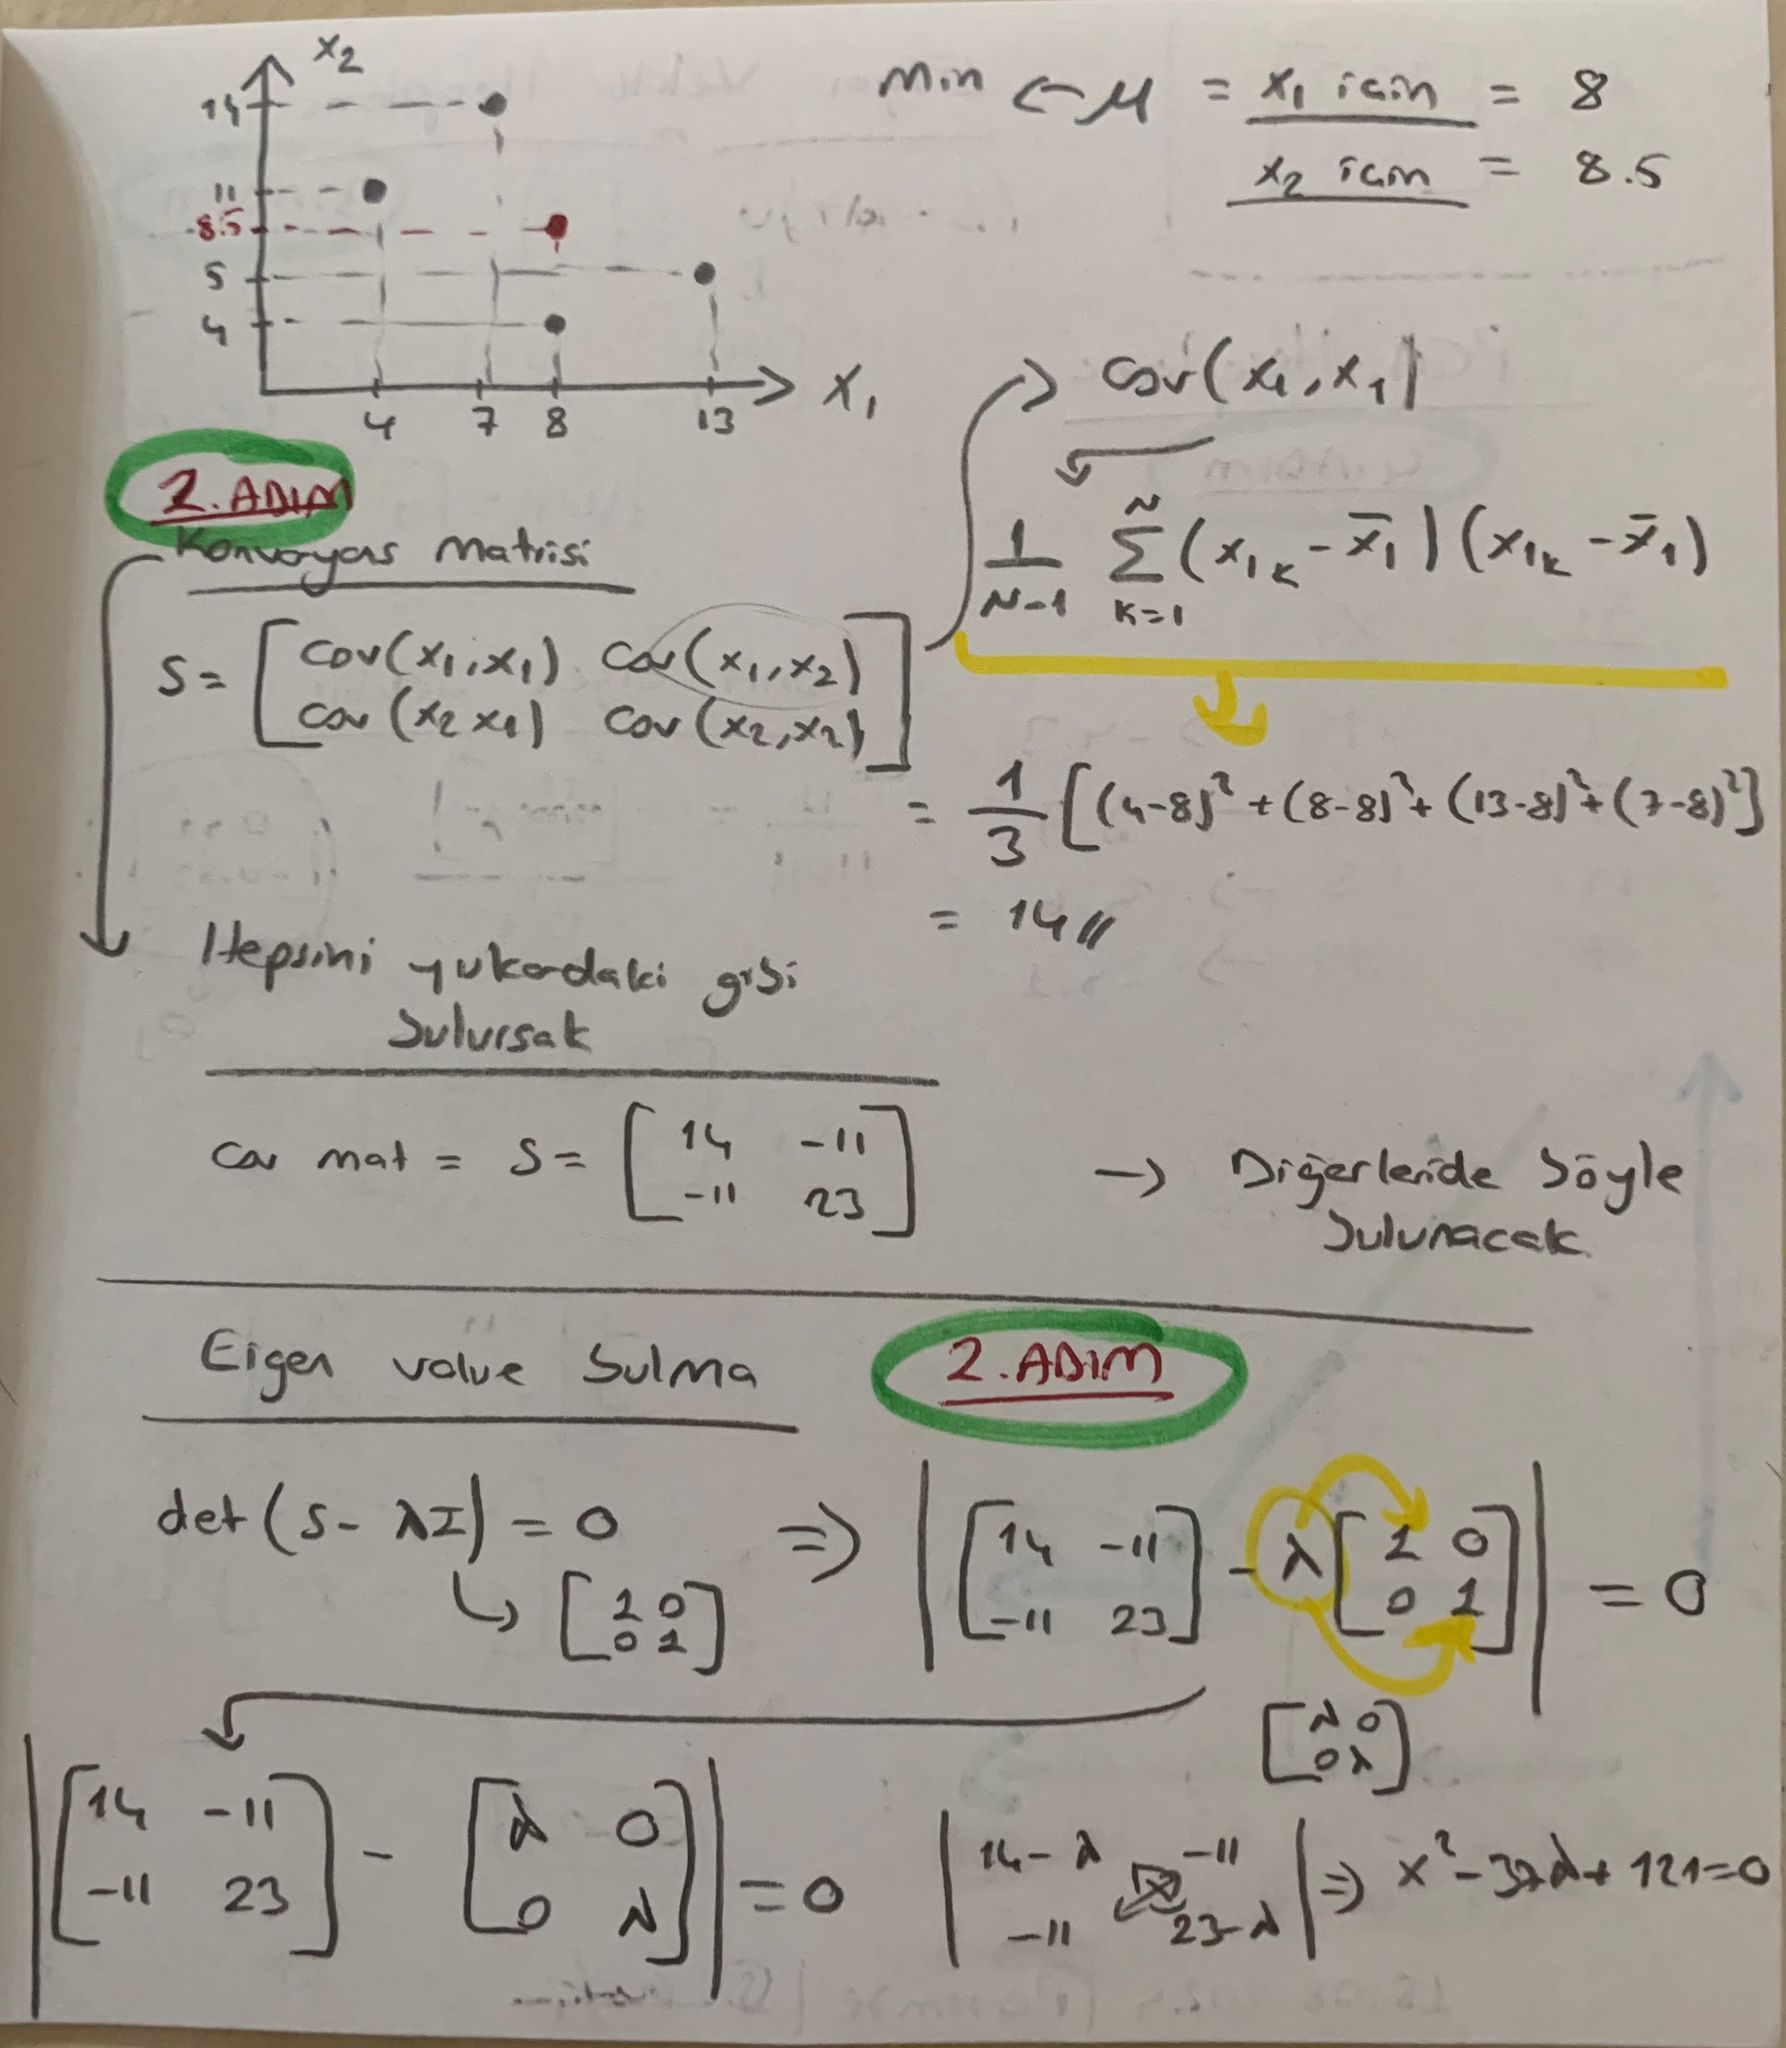 x2
14
11
8.5
5
4
4 7 8 13
x1
Min ← μ = x1 için = 8
x2 için = 8.5
2.ADIM
Konvoyans Matrisi
S= [ cov(x1,x1) cov(x1,x2)
cov(x2 x1) cov(x2,x2) ]
→ cov(x1,x1)
1/N-1 N Σ K=1 (x1k - x̄1)(x1k - x̄1)
= 1/3 [(4-8)² + (8-8)² + (13-8)² + (7-8)²]
= 14 //
Hepsini yukardaki gibi
bulursak
cov mat = S= [ 14 -11
-11 23 ]
→ Diğerleride böyle
bulunacak
Eigen value bulma
2.ADIM
det(S - λI) = 0 => | [ 14 -11
-11 23 ] - λ [ 1 0
0 1 ] | = 0
↳ [ 1 0
0 1 ]
[ λ 0
0 λ ]
| [ 14 -11
-11 23 ] - [ λ 0
0 λ ] | = 0
| 14-λ -11
-11 23-λ | => x² - 37λ + 121=0